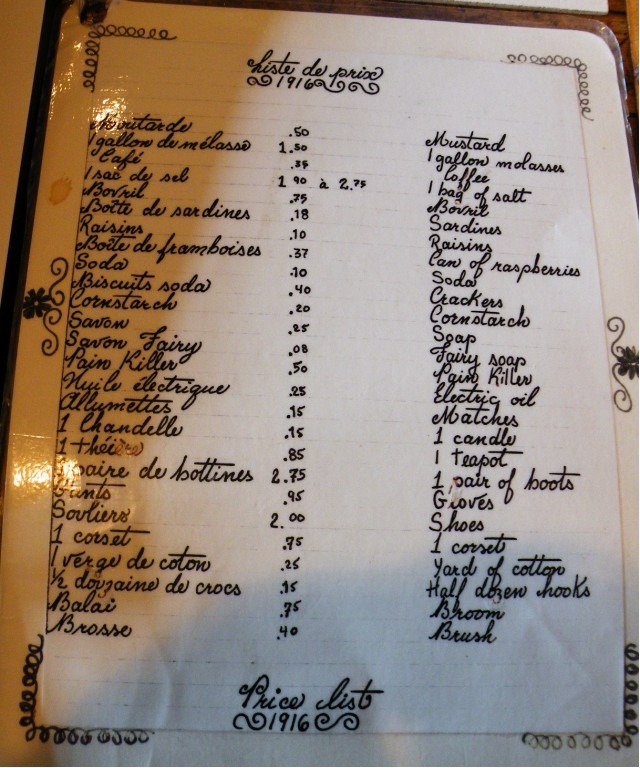 Liste de prix
1916
Moutarde .50 Mustard
1 gallon de mélasse 1.50 1 gallon molasses
Café .35 Coffee
1 sac de sel 1.90 à 2.75 1 bag of salt
Bovril .75 Bovril
Boîte de sardines .18 Sardines
Raisins .10 Raisins
Boîte de framboises .37 Can of raspberries
Soda .10 Soda
Biscuits soda .40 Crackers
Cornstarch .20 Cornstarch
Savon .25 Soap
Savon Fairy .08 Fairy soap
Pain Killer .50 Pain Killer
Huile électrique .25 Electric oil
Allumettes .15 Matches
1 Chandelle .15 1 candle
1 théière .85 1 teapot
1 paire de bottines 2.75 1 pair of boots
Gants .95 Gloves
Souliers 2.00 Shoes
1 corset .75 1 corset
1 verge de coton .25 Yard of cotton
½ douzaine de crocs .15 Half dozen hooks
Balai .75 Broom
Brosse .40 Brush
Price list
1916